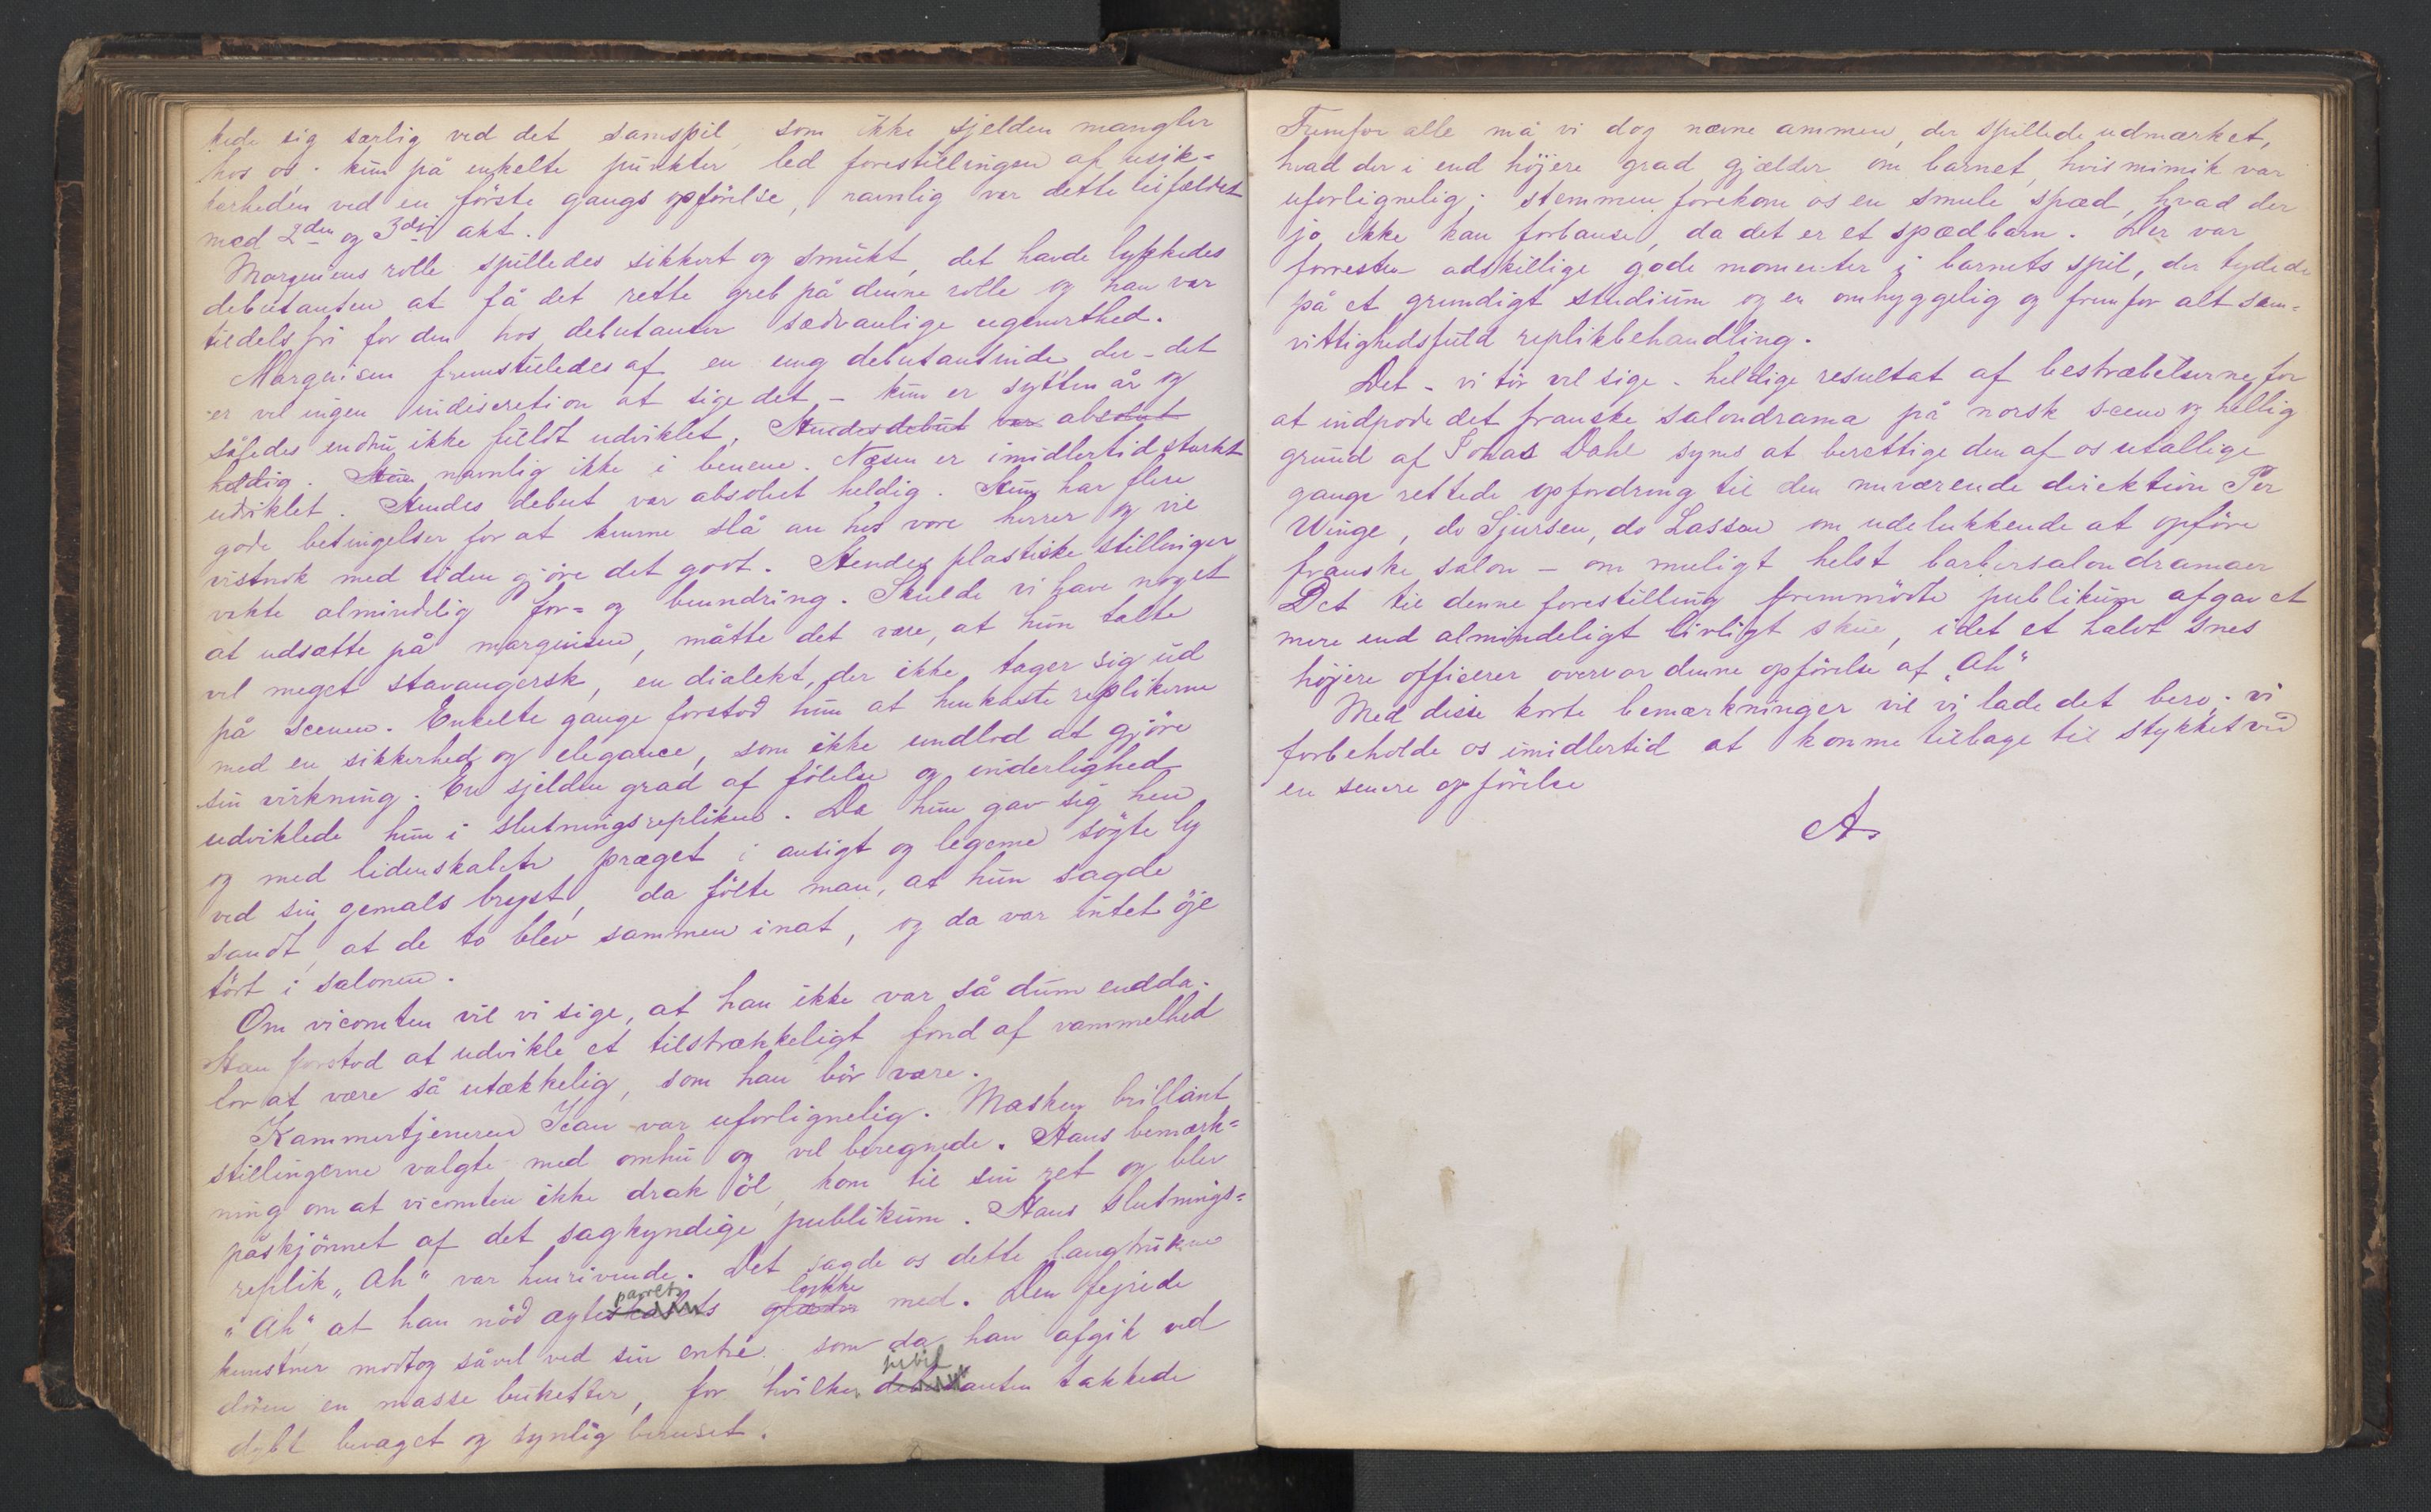 kede sig særlig ved det samspil, som ikke sjelden mangler
hos os. kun på enkelte punkter led forestillingen af usik-
kerheden ved en förste gangs opförelse, navnlig var dette tilfældet
med 2den og 3dje akt.
Marquiens rolle spilledes sikkert og smukt, det havde lykkedes
debutanten at få det rette greb på denne rolle og han var
tildels fri for den hos debutanter sædvanlige ugenerthed.
Marquisen fremstilledes af en ung debutantinde, der – det
er vel ingen indiscretion at sige det – kun er sytten år og
således endnu ikke fuldt udviklet. Hendes debut var absolut
heldig. Hun navnlig ikke i benene. Næsen er imidlertid stærkt
udviklet. Hendes debut var absolut heldig. Hun har flere
gode betingelser for at kunne slå an hos vore herrer og vil
vistnok med tiden gjöre det godt. Hendes plastiske stillinger
vakte almindelig for- og beundring. Skulde vi have noget
at udsætte på marquisen, måtte det være, at hun talte
vel meget stavangersk, en dialekt, der ikke tager sig ud
på scenen. Enkelte gange forstod hun at henkaste replikerne
med en sikkerhed og elegance, som ikke undlod at gjöre
sin virkning. En sjelden grad af fölelse og inderlighed
udviklede hun i slutningsrepliken. Da hun gav sig hen
og med lidenskaben præget i ansigt og legeme sögte ly
ved sin gemals bryst, da fölte man, at hun sagde
sandt, at de to blev sammen inat, og da var intet öje
tört i salonen.
Om vicomten vil vi sige, at han ikke var så dum endda.
Han forstod at udvikle et tilstrækkeligt fond af vammelhed
for at være så utækkelig, som han bör være.
Kammertjeneren Jean var uforlignelig. Masken brillant
stillingerne valgte med omhu og vel beregnede. Hans bemærk-
ning om at vicomten ikke drak öl, kom til sin ret og blev
påskjönnet af det sagkyndige publikum. Hans slutnings-
replik „Ah“ var henrivende. Det sagde os dette langtrukne
„Ah“ at han nöd ægteskabets parrets glæde lykke med. Den fejrede
kunstner modtog såvel ved sin entré, som da han afgik ved
dören en masse buketter, for hvilke debutanten takkede
dybt bevæget og synlig beruset.
Fremfor alle må vi dog nævne ammen, der spillede udmærket,
hvad der i end höjere grad gjælder om barnet, hvis mimik var
uforlignelig; stemmen forekom os en smule spæd, hvad der
jo ikke kan forbause, da det er et spædbarn. Der var
forresten adskillige gode momenter i barnets spil, der tydede
på et grundigt studium og en omhyggelig og fremfor alt sam-
vittighedsfuld replikbehandling.
Det – vi tör vel sige – heldige resultat af bestræbelserne for
at indpode det franske salondrama på norsk scene og hellig
grund af Jonas Dahl synes at berettige den af os utallige
gange rettede opfordring til den nuværende direktion Per
Winge, do Sjursen, do Lasson om udelukkende at opföre
franske salon – om muligt helst barbersalondramaer
Det til denne forestilling fremmödte publikum afgav et
mere end almindeligt livligt skue, idet et halvt snes
höjere officerer overvar denne opförelse af „Ah“
Med disse korte bemærkninger vil vi lade det bero; vi
forbeholde os imidlertid at komme tilbage til stykket ved
en senere opförelse
A.